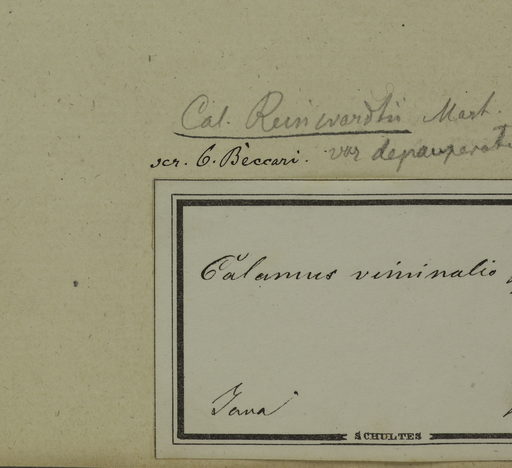 Cal. Reinwardtii Mart.
var depauperat
scr. O. Beccari.
Calamus viminalis
Java
SCHULTES